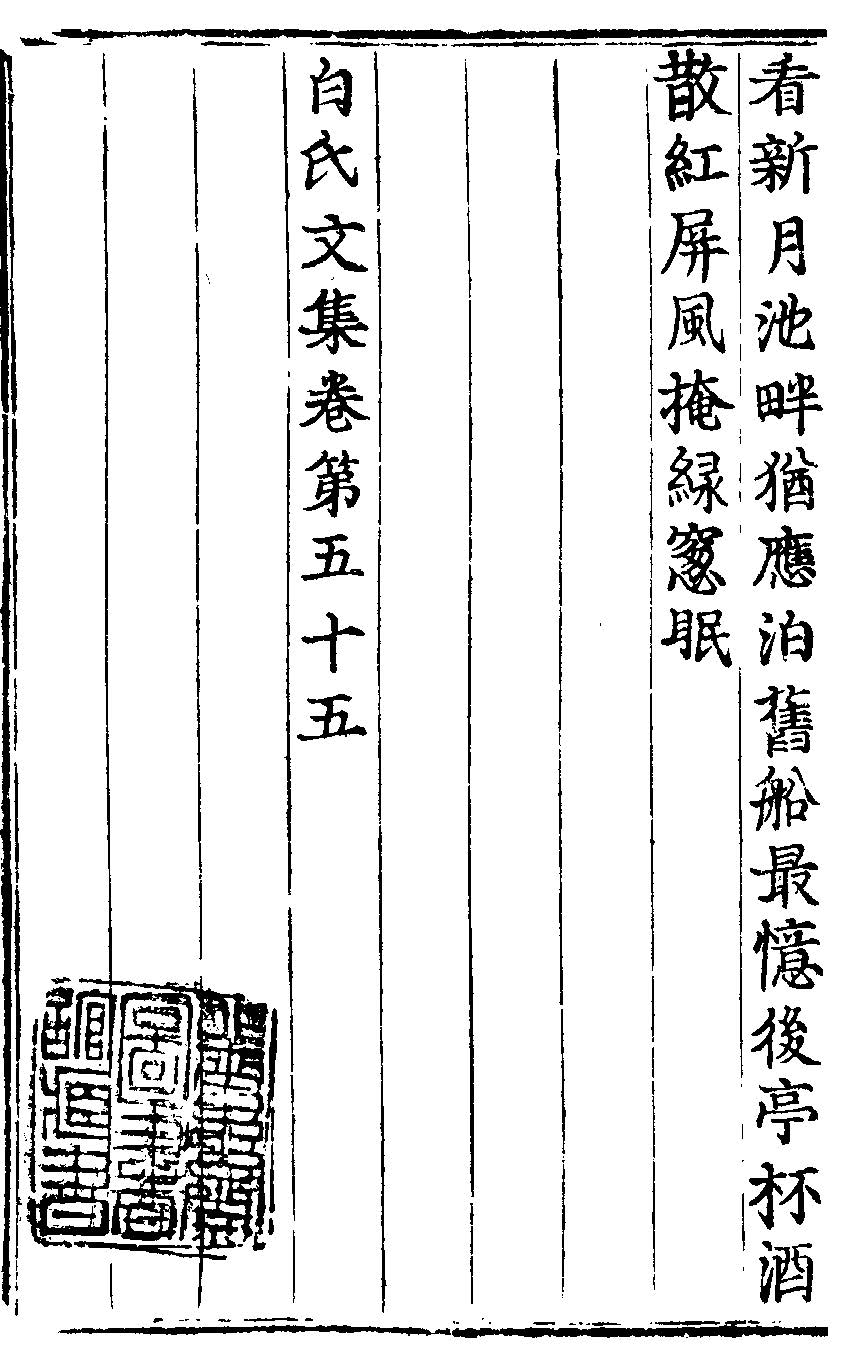 看新月池畔猶應泊舊船最憶後亭杯酒
散紅屏風掩緑窻眠
白氏文集卷第五十五